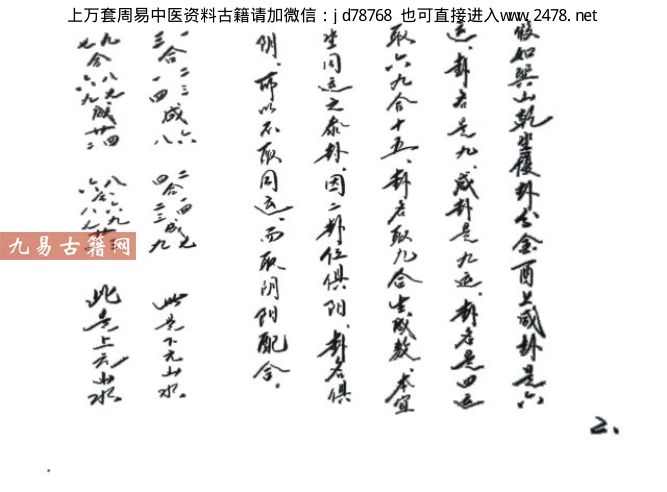 上万套周易中医资料古籍请加微信：jd78768 也可直接进入www.2478.net
2.
假如巽山乾坐履卦分金酉上咸卦是六
运、卦名是九、咸卦是九运、卦名是四运
取六九合十五、卦名取九合生成数、本宜
坐同运之泰卦、因二卦位俱阴、卦名俱
阴、所以不取同运、而取阴阳配合。
一二三六 二一四七
三合一四成八 四合二三成九 此是下元山水。
九八七成廿四
七合六九廿二 此是上元山水。
九易古籍网